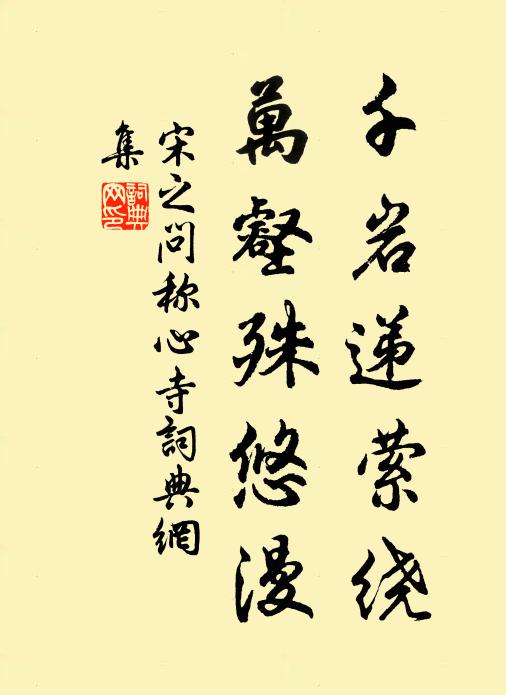 千岩递萦绕
萬壑殊悠漫
宋之问称心寺詞典網
集
詞典
网印